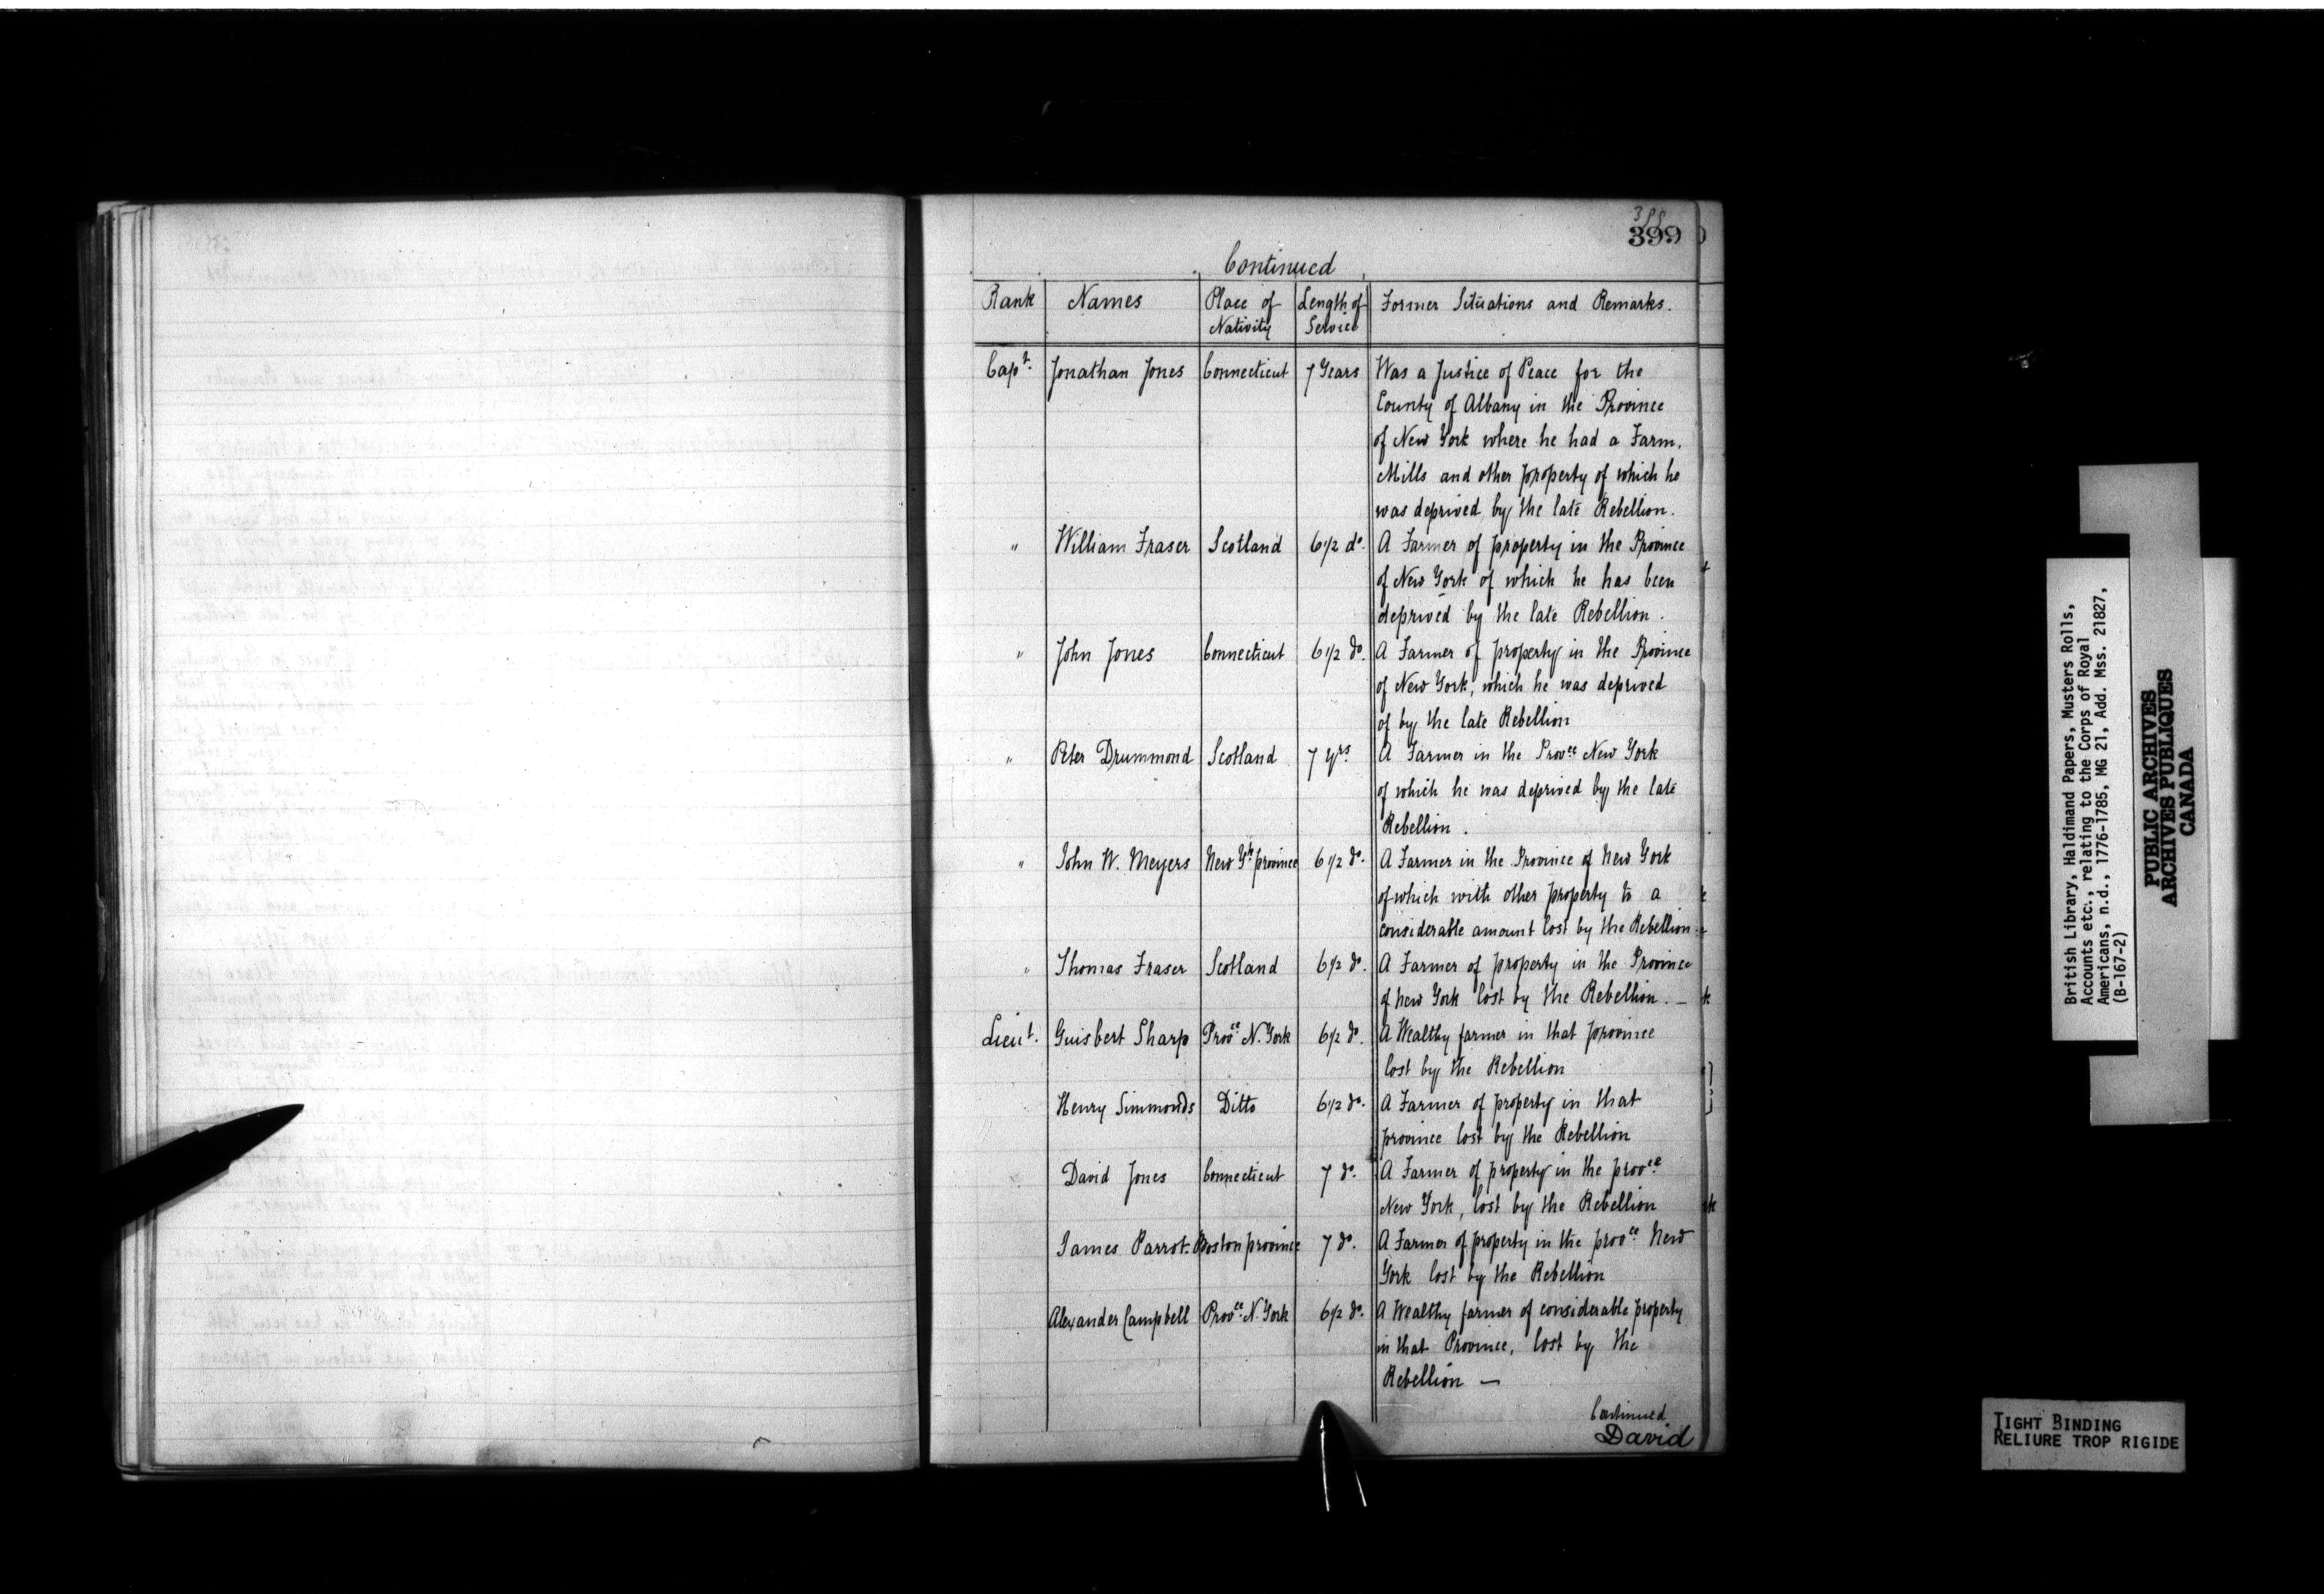 388
399
Continued
Rank Names Place of Nativity Length of Service Former Situations and Remarks.
Capt. Jonathan Jones Connecticut 7 Years Was a Justice of Peace for the
County of Albany in the Province
of New York where he had a Farm,
Mills and other property of which he
was deprived by the late Rebellion.
" William Fraser Scotland 6 1/2 do. A Farmer of property in the Province
of New York of which he has been
deprived by the late Rebellion.
" John Jones Connecticut 6 1/2 do. A Farmer of property in the Province
of New York, which he was deprived
of by the late Rebellion
" Peter Drummond Scotland 7 yrs. A Farmer in the Provce New York
of which he was deprived by the late
Rebellion.
" John W. Meyers New Yk province 6 1/2 do. A Farmer in the Province of New York
of which with other property to a
considerable amount lost by the Rebellion
" Thomas Fraser Scotland 6 1/2 do. A Farmer of property in the Province
of New York lost by the Rebellion. —
Lieut. Guisbert Sharp Provce N. York 6 1/2 do. A Wealthy farmer in that province
lost by the Rebellion
Henry Simmonds Ditto 6 1/2 do. A Farmer of property in that
province lost by the Rebellion
David Jones Connecticut 7 do. A Farmer of property in the provce
New York, lost by the Rebellion
James Parrot Boston province 7 do. A Farmer of property in the provce New
York lost by the Rebellion
Alexander Campbell Provce N. York 6 1/2 do. A Wealthy farmer of considerable property
in that Province, lost by the
Rebellion —
Continued
David
British Library, Haldimand Papers, Musters Rolls,
Accounts etc., relating to the Corps of Royal
Americans, n.d., 1776-1785, MG 21, Add. Mss. 21827,
(B-167-2)
PUBLIC ARCHIVES
ARCHIVES PUBLIQUES
CANADA
TIGHT BINDING
RELIURE TROP RIGIDE